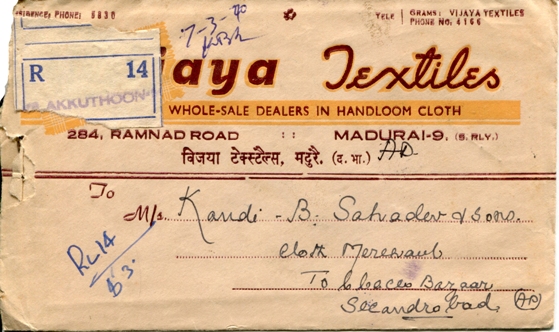 RESIDENCE; PHONE: 8830
TELE
GRAMS: VIJAYA TEXTILES
PHONE NO. 4166
7-3-70
R 14
LAKKUTHOON
jaya Textiles
WHOLE-SALE DEALERS IN HANDLOOM CLOTH
284, RAMNAD ROAD :: MADURAI-9, (S. RLY.)
विजया टेक्स्टैल्स, मदुरै. (द. भा.) AD
To
M/s Kandi - B. Sahadev & Sons.
Cloth Merchant
Tobbacco Bazaar
Secandrabad. (AP)
RL14
63.